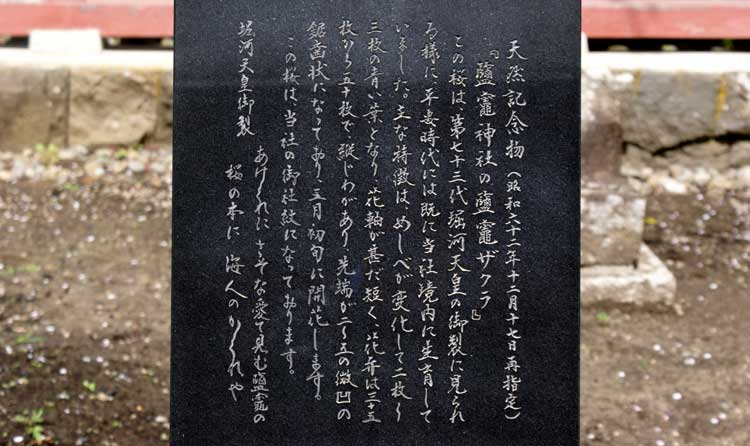 天然記念物(昭和六十二年十二月十七日再指定)
『鹽竈神社の鹽竈ザクラ』
この桜は、第七十三代堀河天皇の御製に見られ
る様に平安時代には既に当社境内に生育して
いました。主な特徴は、めしべが変化して二枚〜
三枚の青い葉となり、花軸が甚だ短く、花弁は三十五
枚から五十枚で縦じわがあり、先端が二〜五の微凹の
鋸歯状になっており五月初旬に開花します。
この桜は、当社の御社紋になっております。
堀河天皇御製
あけくれに さぞな愛で見む鹽竈の
桜の本に 海人のかくれや